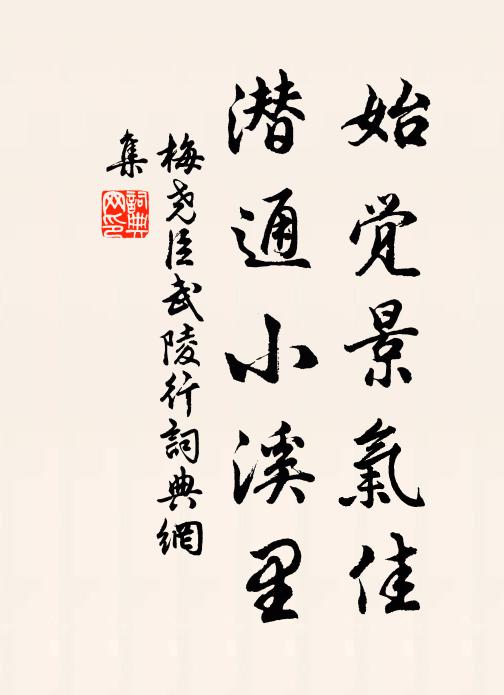 始觉景氣佳
潜通小溪里
梅尧臣武陵行詞典網
集
詞典
网印